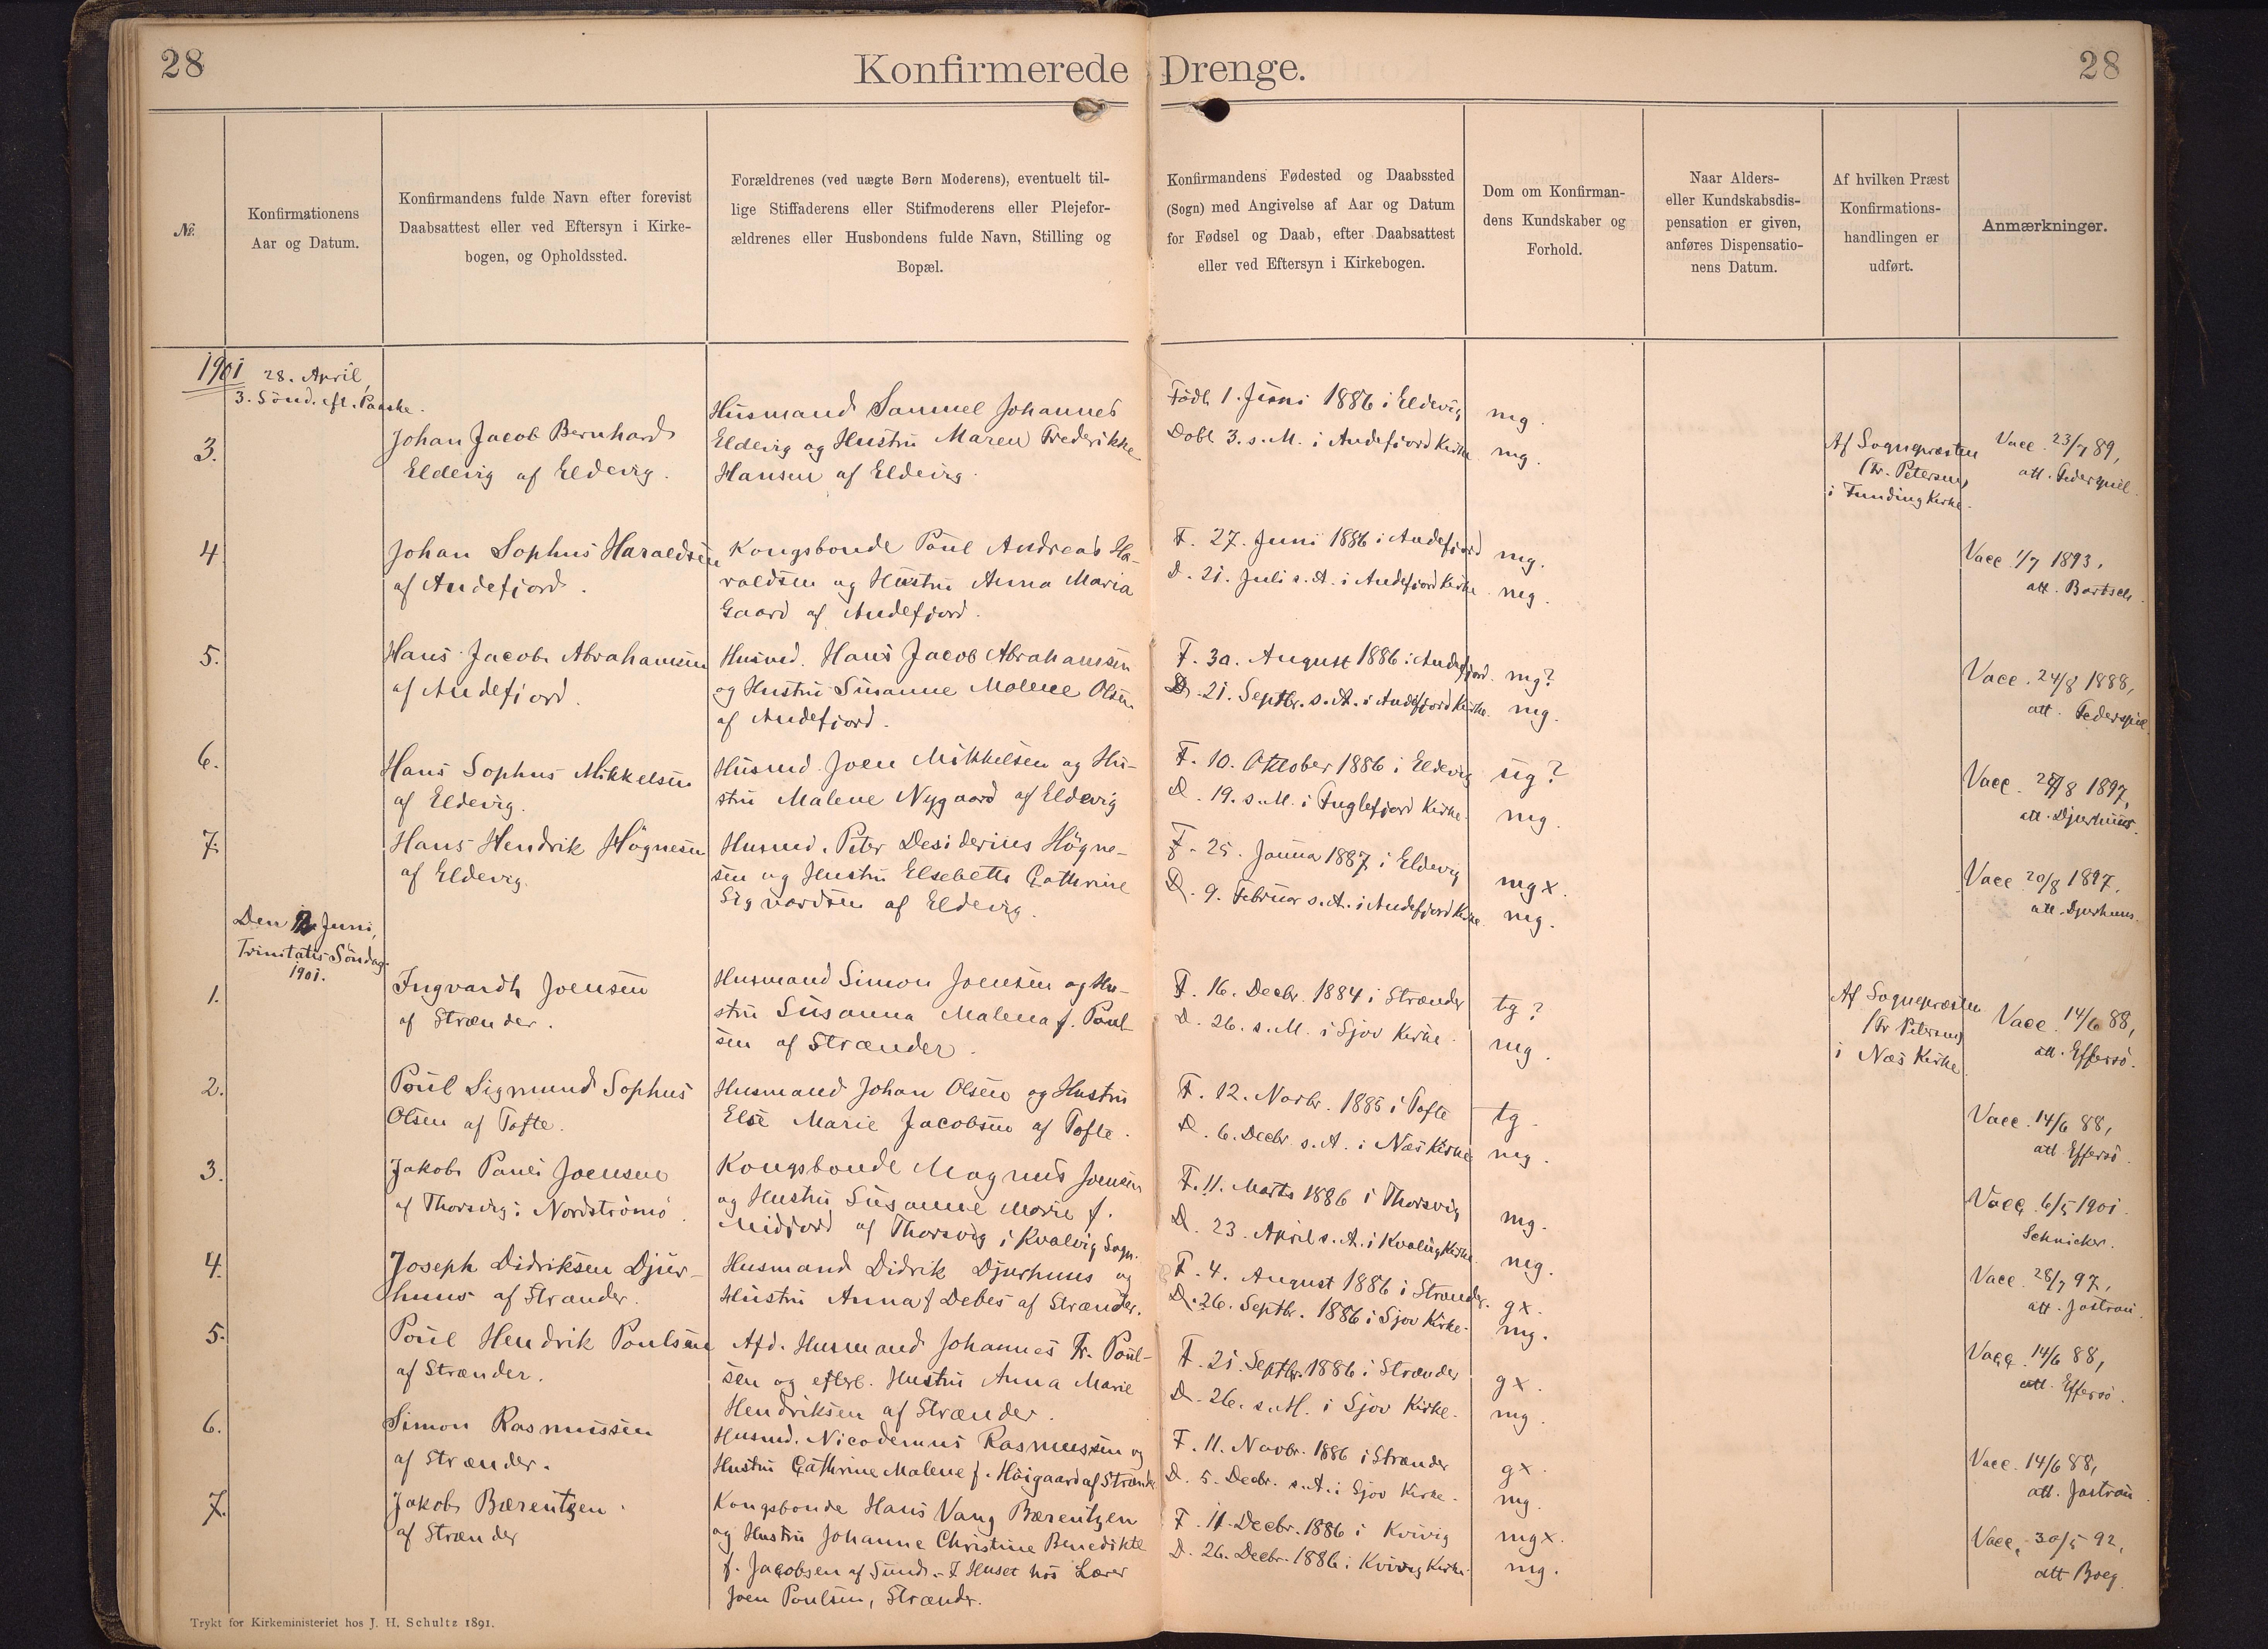 28
Konfirmerede Drenge.
28
№.
Konfirmationens
Aar og Datum.
Konfirmandens fulde Navn efter forevist
Daabsattest eller ved Eftersyn i Kirke-
bogen, og Opholdssted.
Forældrenes (ved uægte Børn Moderens), eventuelt til-
lige Stiffaderens eller Stifmoderens eller Plejefor-
ældrenes eller Husbondens fulde Navn, Stilling og
Bopæl.
Konfirmandens Fødested og Daabssted
(Sogn) med Angivelse af Aar og Datum
for Fødsel og Daab, efter Daabsattest
eller ved Eftersyn i Kirkebogen.
Dom om Konfirman-
dens Kundskaber og
Forhold.
Naar Alders-
eller Kundskabsdis-
pensation er given,
anføres Dispensatio-
nens Datum.
Af hvilken Præst
Konfirmations-
handlingen er
udført.
Anmærkninger.
1901
28. April,
3. Sönd. eft. Paaske.
3.
Johan Jacob Bernhard
Eldevig af Eldevig.
Husmand Samuel Johannes
Eldevig og Hustru Maren Frederikke
Hansen af Eldevig.
Födt 1. Juni 1886 i Eldevig
Döbt 3. s. M. i Andefjord Kirke
mg.
mg.
Af Sognepræsten
(Fr. Petersen)
i Funding Kirke.
Vacc. 23/7 89,
att. Federspiel.
4.
Johan Sophus Haraldsen
af Andefjord.
Kongsbonde Poul Andreas Ha-
raldsen og Hustru Anna Maria
Gaard af Andefjord.
F. 27. Juni 1886 i Andefjord
D. 21. Juli s. A. i Andefjord Kirke.
mg.
mg.
Vacc. 1/7 1893,
att. Bartsch.
5.
Hans Jacob Abrahamsen
af Andefjord.
Husmd. Hans Jacob Abrahamsen
og Hustru Susanne Malene Olsen
af Andefjord.
F. 30. August 1886 i Andefjord.
D. 21. Septbr. s. A. i Andefjord Kirke.
mg?
mg.
Vacc. 24/8 1888,
att. Federspiel
6.
Hans Sophus Mikkelsen
af Eldevig.
Husmd. Joen Mikkelsen og Hu-
stru Malene Nygaard af Eldevig
F. 10. Oktober 1886 i Eldevig
D. 19. s. M. i Fuglefjord Kirke.
ug?
mg.
Vacc. /8 1897,
att. Djurhuus.
7.
Hans Hendrik Högnesen
af Eldevig.
Husmd. Peter Desiderius Högne-
sen og Hustru Elsebette Cathrine
Sigvardsen af Eldevig.
F. 25. Janua 1887 i Eldevig
D. 9. Februar s. A. i Andefjord Kirke.
mg x.
mg.
Vacc 20/8 1897.
att. Djurhuus.
Den 2. Juni,
Trinitatis Söndag
1901.
1.
Ingvardt Joensen
af Strænder.
Husmand Simon Joensen og Hu-
stru Susanna Malena f. Poul-
sen af Strænder.
F. 16. Decbr. 1884 i Strænder
D. 26. s. M. i Sjov Kirke.
tg?
mg.
Af Sognepræsten
(Fr. Petersen)
i Næs Kirke.
Vacc. 14/6 88,
att. Effersö.
2.
Poul Sigmund Sophus
Olsen af Tofte.
Husmand Johan Olsen og Hustru
Else Marie Jacobsen af Tofte.
F. 12. Novbr. 1885 i Tofte
D. 6. Decbr. s. A. i Næs Kirke
tg.
mg.
Vacc. 14/6 88,
att. Effersö.
3.
Jakob Pauli Joensen
af Thorsvig i Nordströmö.
Kongsbonde Magnus Joensen
og Hustru Susanne Marie f.
Midjord af Thorsvig i Kvalvig Sogn.
F. 11. Marts 1886 i Thorsvig
D. 23. April s. A. i Kvalvig Kirke.
mg.
mg.
Vacc. 6/5 1901.
Schnicker.
4.
Joseph Didriksen Djur-
huus af Strænder.
Husmand Didrik Djurhuus og
Hustru Anna f Debes af Strænder.
F. 4. August 1886 i Strænder.
D. 26. Septbr. 1886 i Sjov Kirke.
g x.
mg.
Vacc. 28/7 97,
att. Jastrau.
5.
Poul Hendrik Poulsen
af Strænder.
Afd. Husmand Johannes Fr. Poul-
sen og efterl. Hustru Anna Marie
Hendriksen af Strænder.
F. 21. Septbr. 1886 i Strænder
D. 26. s. M. i Sjov Kirke.
g x.
mg.
Vacc. 14/6 88,
att. Effersö.
6.
Simon Rasmussen
af Strænder.
Husmd. Nicodemus Rasmussen og
Hustru Cathrine Malene f. Höigaard af Strænder
F. 11. Novbr. 1886 i Strænder
D. 5. Decbr. s. A. i Sjov Kirke.
g x.
mg.
Vacc. 14/6 88,
att. Jastrau.
7.
Jakob Bærentzen
af Strænder
Kongsbonde Hans Vang Bærentzen
og Hustru Johanne Christine Benedikte
f. Jacobsen af Sund. - I Huset hos Lærer
Joen Poulsen, Strænder.
F. 11. Decbr. 1886 i Kvivig
D. 26. Decbr. 1886 i Kvivig Kirke.
mg x.
mg.
Vacc. 30/5 92,
att Boeg.
Trykt for Kirkeministeriet hos J. H. Schultz 1891.